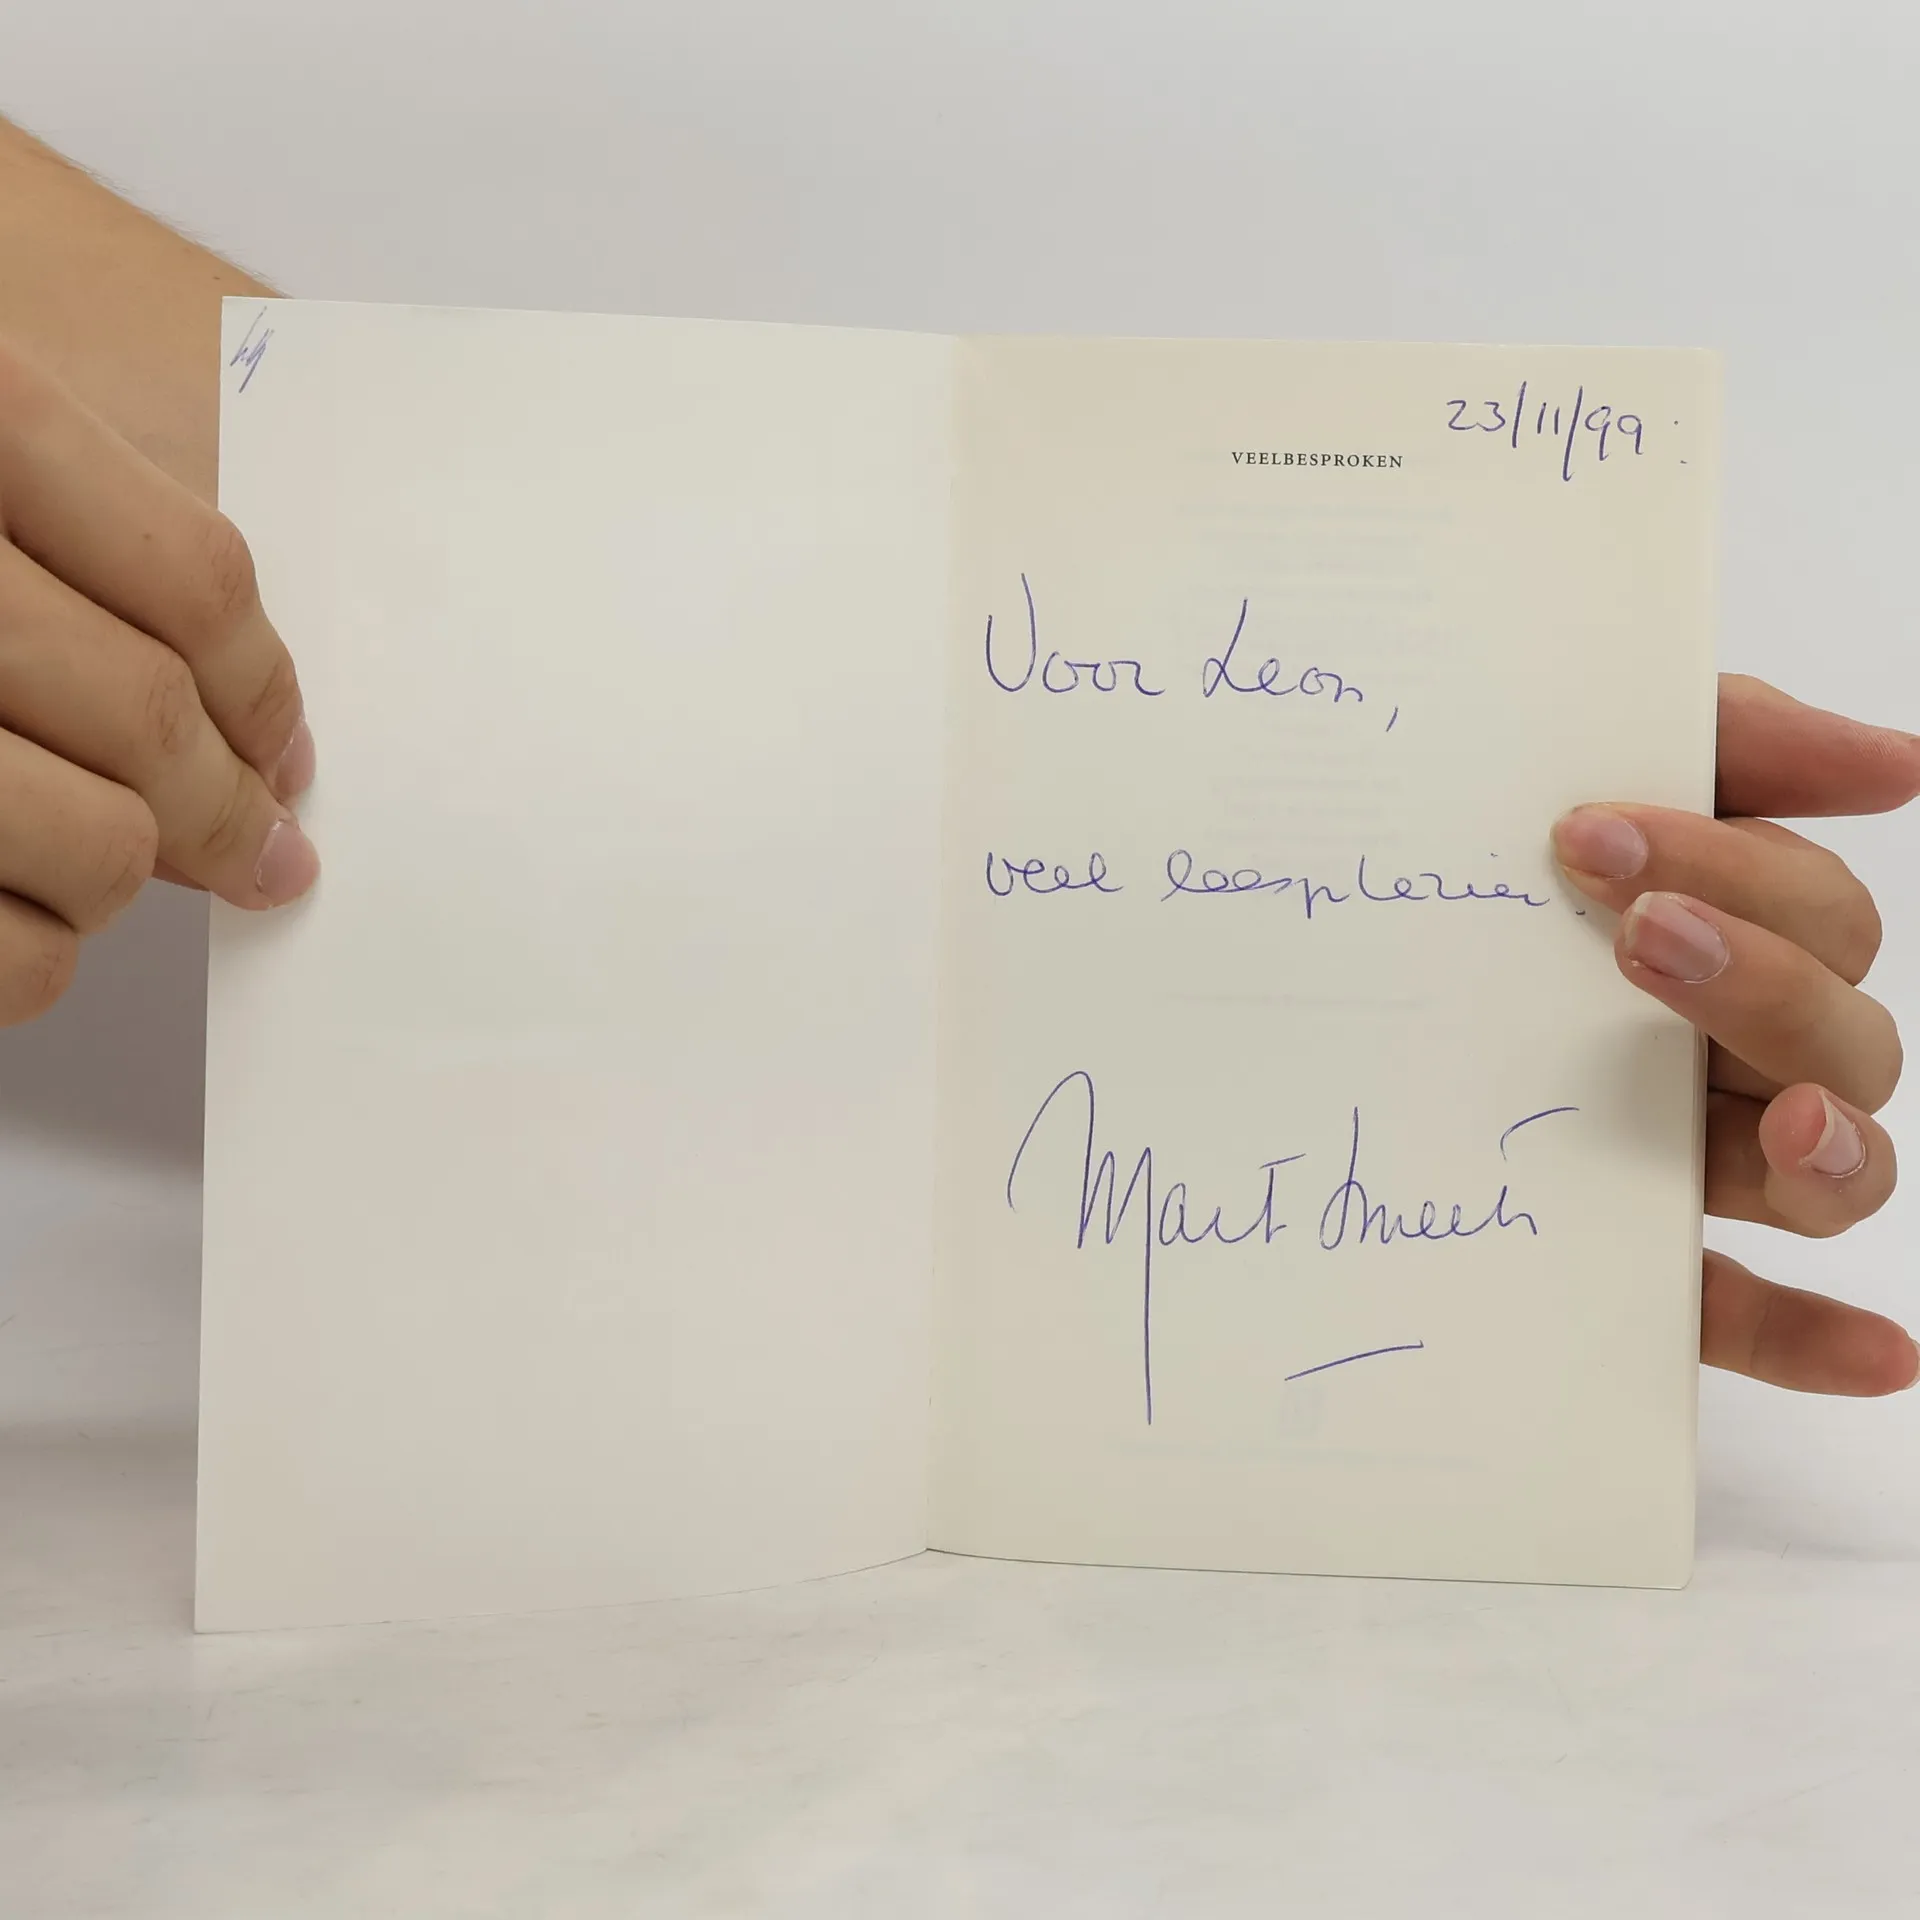 23/11/99:
VEELBESPROKEN
Voor Leon,
veel leesplezier.
Mart Smeets